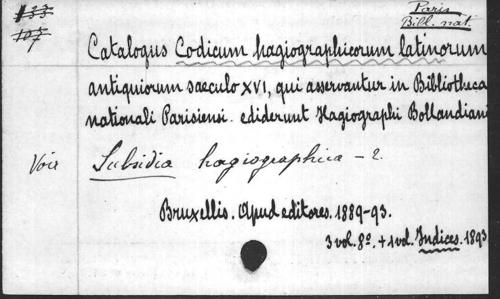 133
107
Paris
Bibl. nat.
Catalogus Codicum hagiographicorum latinorum
antiquiorum saeculo XVI, qui asservantur in Bibliotheca
nationali Parisiensi. ediderunt Hagiographi Bollandiani
Voir Subsidia hagiographica - 2.
Bruxellis. Apud editores. 1889-93.
3 vol. 8º. + 1 vol. Indices. 1893